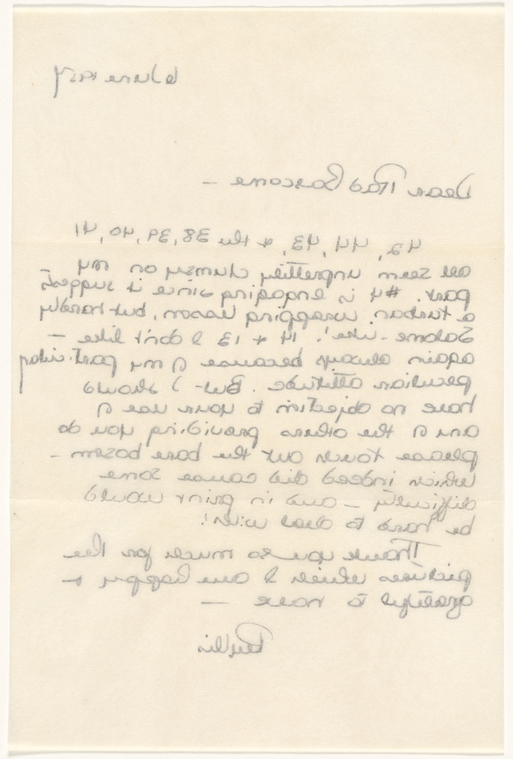 6 June 1957
Dear Trad Bascome —
42, 44, 43, & the 38, 39, 40, 41
all seem unprettily clumsy on my
part. #4 is engaging since it suggests
a turban wrapping lesson, but hardly
Salome-like! 14 & 13 I don't like —
again always because of my
peculiar attitude. But I should
have no objection to your use of
any of the others providing you do
please touch out the bare bosom —
which indeed did cause some
difficulty — and in print would
be hard to deal with!
Thank you so much for the
pictures which I am happy &
grateful to have —